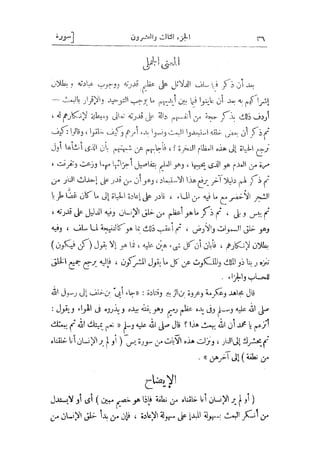 ٣٦ الجزء الثالث والعشرون [سورة
المعنى الجملي
بعد أن ذكر فيما سلف الدلائل على عظيم قدرته ووجوب عبادته وبطلان
إشراكهم به بعد أن عاينوا فيما بين أيديهم ما يوجب التوحيد والإقرار بالبعث —
أردف ذلك بذكر حجة من أنفسهم دالة على قدرته تعالى ومبطلة لإنكارهم له ،
ثم ذكر أن بعض خلقه استبعدوا البعث ونسوا بدء أمرهم وكيف خلقوا ، وقالوا : كيف
ترجع الحياة إلى هذه العظام النخرة ؟ ، فأجابهم عن شبهتهم بأن الذي أنشأها أول
مرة من العدم هو الذي يحييها ، وهو العليم بتفاصيل أجزائها مهما وزعت وتفرقت ،
ثم ذكر لهم دليلا آخر يرفع هذا الاستبعاد ، وهو أن من قدر على إحداث النار من
الشجر الأخضر مع ما فيه من الماء ، قادر على إعادة الحياة إلى ما كان غضّا طريا
ثم يبس وبلى ، ثم ذكر ما هو أعظم من خلق الإنسان وفيه الدليل على قدرته ،
وهو خلق السموات والأرض ، ثم أعقب ذلك بما هو كالنتيجة لما سلف ، وفيه
بطلان لإنكارهم ، فأبان أن كل شيء هيّن عليه ، فما هو إلا بقول (كن فيكون)
تنزه ربنا ذو الملك والملكوت عن كل ما يقول المشركون ، فإليه يرجع جميع الخلق
للحساب والجزاء .
قال مجاهد وعكرمة وعروة بن الزبير وقتادة : «جاء أبىّ بن خلف إلى رسول الله
صلى الله عليه وسلم وفى يده عظم رميم وهو يفتّه بيده ويذروه فى الهواء ويقول :
أتزعم يا محمد أن الله يبعث هذا ؟ قال صلى الله عليه وسلم « نعم يميتك الله ثم يبعثك
ثم يحشرك إلى النار ، ونزلت هذه الآيات من سورة يس (أو لم ير الإنسان أنا خلقناه
من نطفة) إلى آخرهن » .
الإيضاح
(أو لم ير الإنسان أنا خلقناه من نطفة فإذا هو خصيم مبين) أى أو لا يستدل
من أنكر البعث بسهولة المبدإ على سهولة الإعادة ، فإن من بدأ خلق الإنسان من